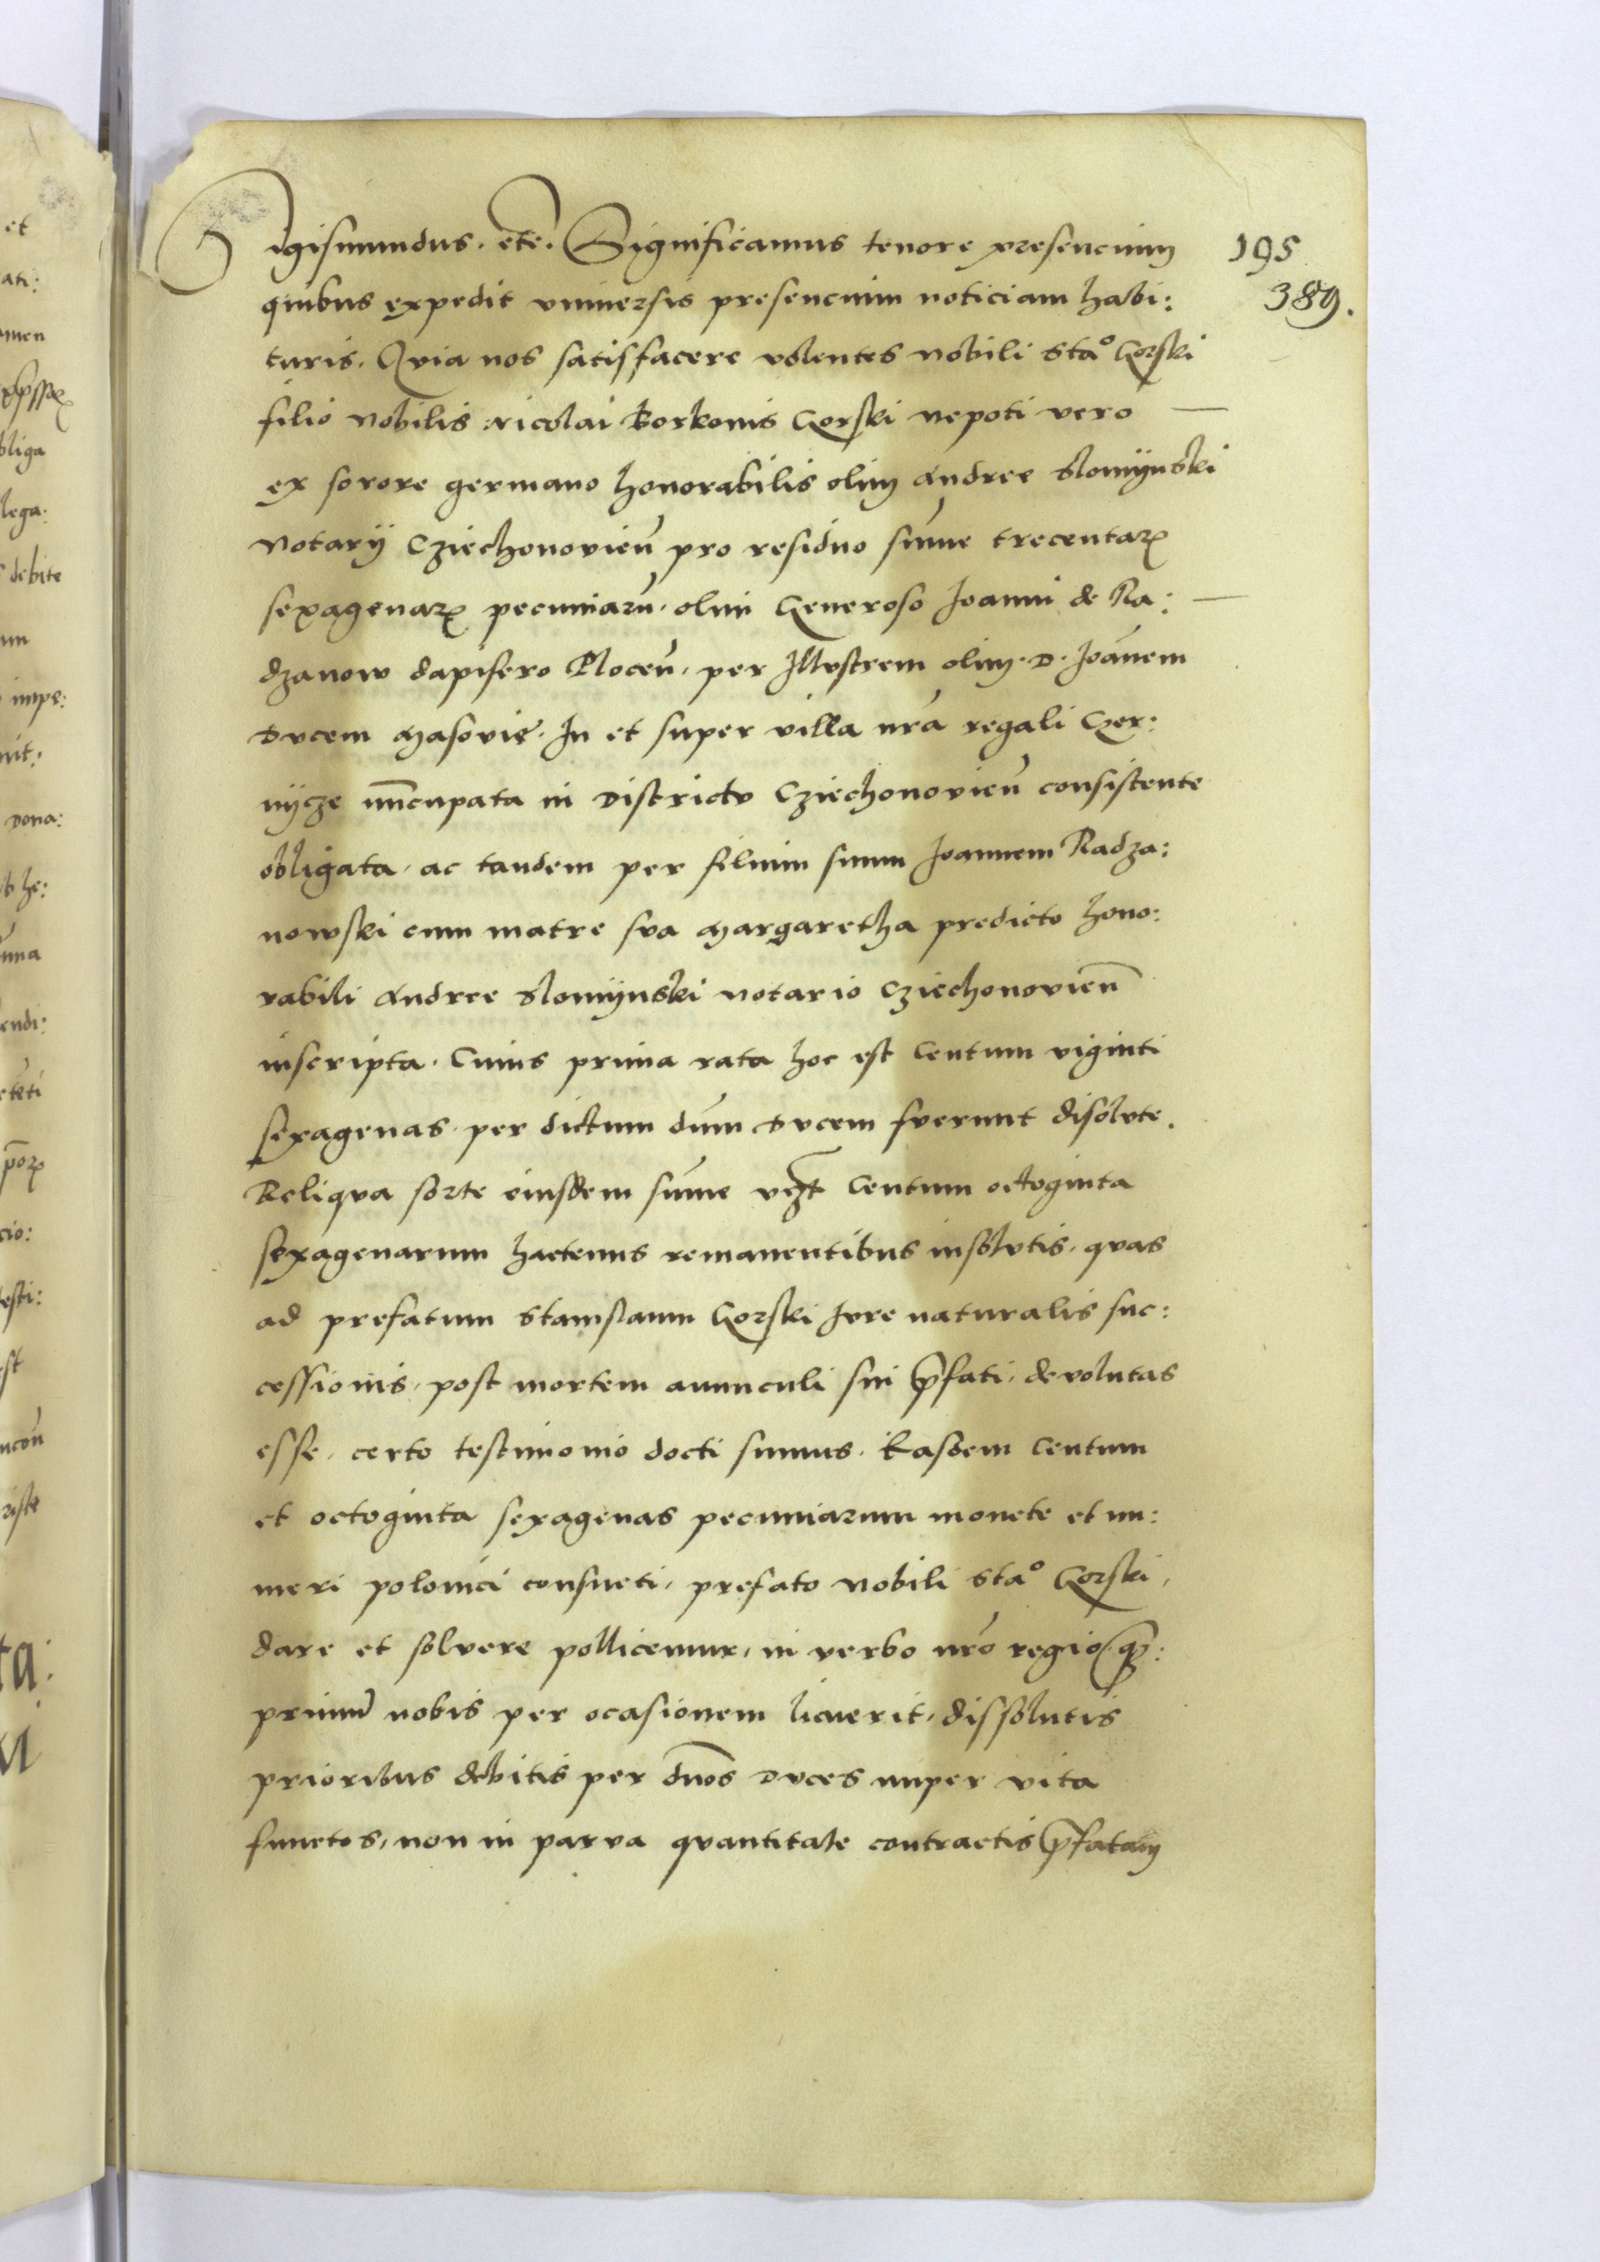 Sigismundus. etc. Significamus tenore presencium
195
389.
quibus expedit vniuersis presencium noticiam habi:
turis. Qvia nos satisfacere volentes nobili Stão Gorski
filio nobilis Nicolai Borkonis Gorski nepoti vero
ex sorore germano honorabilis olim Andree Slomÿnski
Notarÿ Cziechonovien̄ pro residuo sum̄e trecentarꝝ
sexagenarꝝ pecuniarū. olim Generoso Joanni de Ra:
dzanow dapifero Plocen̄. per Illvstrem olim. D. Joan̄em
Dvcem Masovie. In et super villa nr̄a regali Czer:
nÿcze nūncupata in Districtv Cziechonovien̄ consistente
obligata. ac tandem per filium suum Joannem Radza:
nowski cum matre sva Margaretha predicto hono:
rabili Andree Slomÿnski notario Cziechonovien̄
inscripta. Cuius prima rata hoc est Centum viginti
sexagenas. per dictum dūm Dvcem fverunt disolvte.
Reliqva sorte eiusdem sum̄e vꝫt Centum octoginta
sexagenarum hactenus remanentibus insolvtis. qvas
ad prefatum Stanislaum Gorski Jvre naturalis suc:
cessionis. post mortem auunculi sui p̄fati. devolutas
esse. certo testimonio docti sumus. Easdem Centum
et octoginta sexagenas pecuniarum monete et nu:
meri polonici consueti. prefato nobili Stão Gorski,
dare et solvere pollicemur. in verbo nr̄o regio. qꝫ:
primū nobis per ocasionem licuerit. dissolutis
prioribus debitis per dnōs Dvces nuper vita
functos, non in parva qvantitate contractis p̄fatam